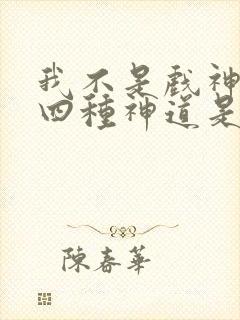 我不是戲神
四種神道是
陳春華